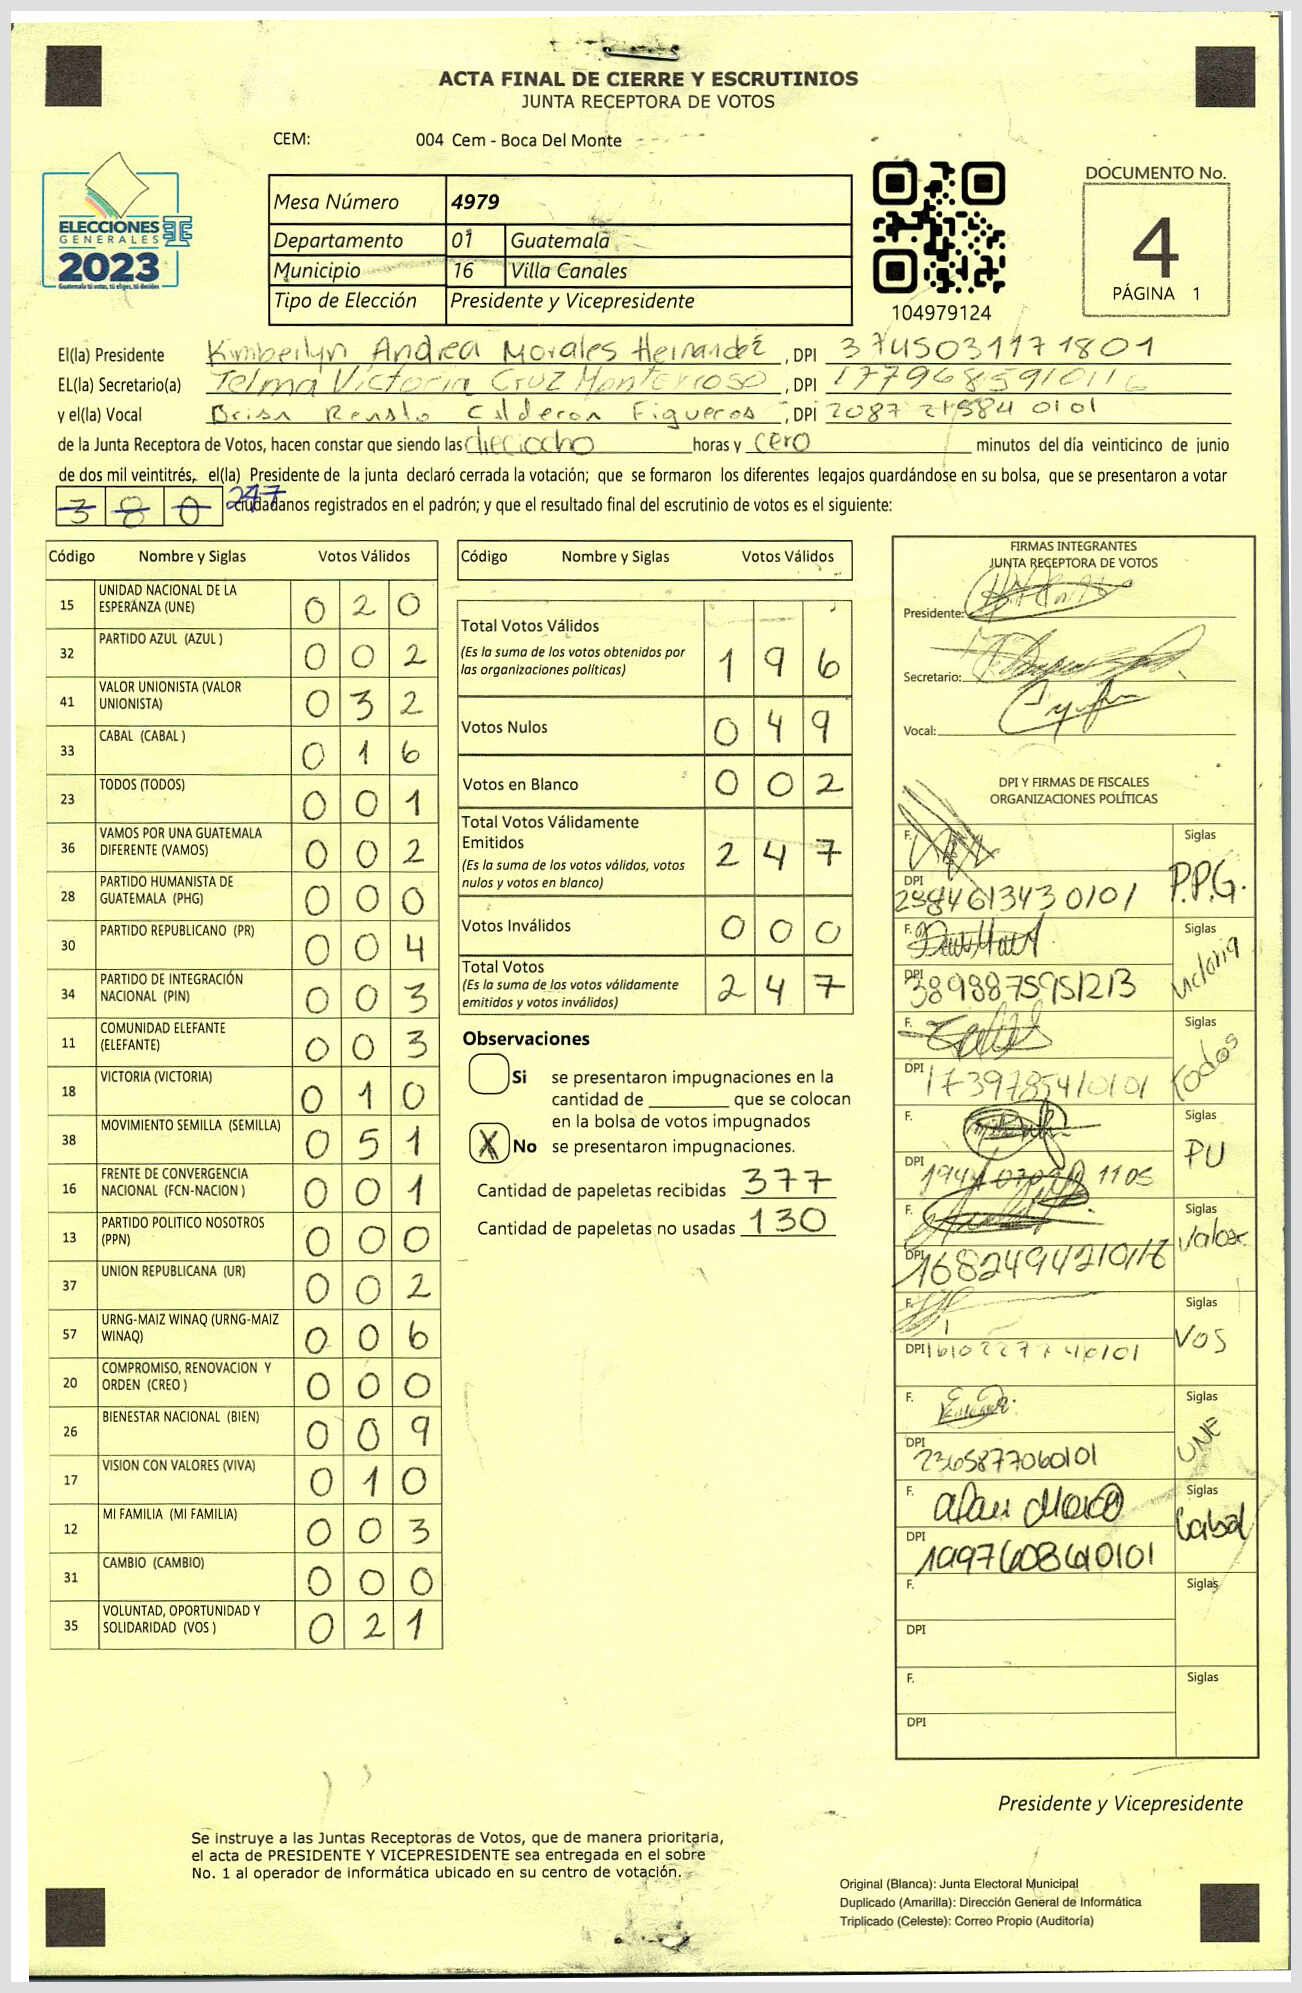 ACTA FINAL DE CIERRE Y ESCRUTINIOS
JUNTA RECEPTORA DE VOTOS
CEM: 004 Cem - Boca Del Monte
ELECCIONES
GENERALES
2023
Guatemala tú votas, tú eliges, tú decides
Mesa Número 4979
Departamento 01 Guatemala
Municipio 16 Villa Canales
Tipo de Elección Presidente y Vicepresidente
104979124
DOCUMENTO No.
4
PÁGINA 1
El(la) Presidente Kimberlyn Andrea Morales Hernández, DPI 3745031171801
EL(la) Secretario(a) Telma Victoria Cruz Monterroso, DPI 1779685910116
y el(la) Vocal Calderon Figueroa, DPI 2087 21584 0101
de la Junta Receptora de Votos, hacen constar que siendo las dieciocho horas y cero minutos del día veinticinco de junio
de dos mil veintitrés, el(la) Presidente de la junta declaró cerrada la votación; que se formaron los diferentes legajos guardándose en su bolsa, que se presentaron a votar
3 8 0 247 ciudadanos registrados en el padrón; y que el resultado final del escrutinio de votos es el siguiente:
Código Nombre y Siglas Votos Válidos
15 UNIDAD NACIONAL DE LA ESPERANZA (UNE) 0 2 0
32 PARTIDO AZUL (AZUL ) 0 0 2
41 VALOR UNIONISTA (VALOR UNIONISTA) 0 3 2
33 CABAL (CABAL ) 0 1 6
23 TODOS (TODOS) 0 0 1
36 VAMOS POR UNA GUATEMALA DIFERENTE (VAMOS) 0 0 2
28 PARTIDO HUMANISTA DE GUATEMALA (PHG) 0 0 0
30 PARTIDO REPUBLICANO (PR) 0 0 4
34 PARTIDO DE INTEGRACIÓN NACIONAL (PIN) 0 0 3
11 COMUNIDAD ELEFANTE (ELEFANTE) 0 0 3
18 VICTORIA (VICTORIA) 0 1 0
38 MOVIMIENTO SEMILLA (SEMILLA) 0 5 1
16 FRENTE DE CONVERGENCIA NACIONAL (FCN-NACION ) 0 0 1
13 PARTIDO POLITICO NOSOTROS (PPN) 0 0 0
37 UNION REPUBLICANA (UR) 0 0 2
57 URNG-MAIZ WINAQ (URNG-MAIZ WINAQ) 0 0 6
20 COMPROMISO, RENOVACION Y ORDEN (CREO ) 0 0 0
26 BIENESTAR NACIONAL (BIEN) 0 0 9
17 VISION CON VALORES (VIVA) 0 1 0
12 MI FAMILIA (MI FAMILIA) 0 0 3
31 CAMBIO (CAMBIO) 0 0 0
35 VOLUNTAD, OPORTUNIDAD Y SOLIDARIDAD (VOS ) 0 2 1
Código Nombre y Siglas Votos Válidos
Total Votos Válidos 1 9 6
(Es la suma de los votos obtenidos por
las organizaciones políticas)
Votos Nulos 0 4 9
Votos en Blanco 0 0 2
Total Votos Válidamente
Emitidos 2 4 7
(Es la suma de los votos válidos, votos
nulos y votos en blanco)
Votos Inválidos 0 0 0
Total Votos 2 4 7
(Es la suma de los votos válidamente
emitidos y votos inválidos)
Observaciones
Si se presentaron impugnaciones en la
cantidad de ________ que se colocan
en la bolsa de votos impugnados
X No se presentaron impugnaciones.
Cantidad de papeletas recibidas 377
Cantidad de papeletas no usadas 130
FIRMAS INTEGRANTES
JUNTA RECEPTORA DE VOTOS
Presidente:
Secretario:
Vocal:
DPI Y FIRMAS DE FISCALES
ORGANIZACIONES POLÍTICAS
F. Siglas P.P.G.
DPI 2584613430101
F. Siglas Victoria
DPI 3898875951213
F. Siglas todos
DPI 1739785410101
F. Siglas PU
DPI
F. Siglas Valor
DPI 1682494210116
F. Siglas VOS
DPI 1610227740101
F. Siglas UNE
DPI 2365877060101
F. Siglas Cabal
DPI 1997608610101
F. Siglas
DPI
F. Siglas
DPI
Presidente y Vicepresidente
Se instruye a las Juntas Receptoras de Votos, que de manera prioritaria,
el acta de PRESIDENTE Y VICEPRESIDENTE sea entregada en el sobre
No. 1 al operador de informática ubicado en su centro de votación.
Original (Blanca): Junta Electoral Municipal
Duplicado (Amarilla): Dirección General de Informática
Triplicado (Celeste): Correo Propio (Auditoría)